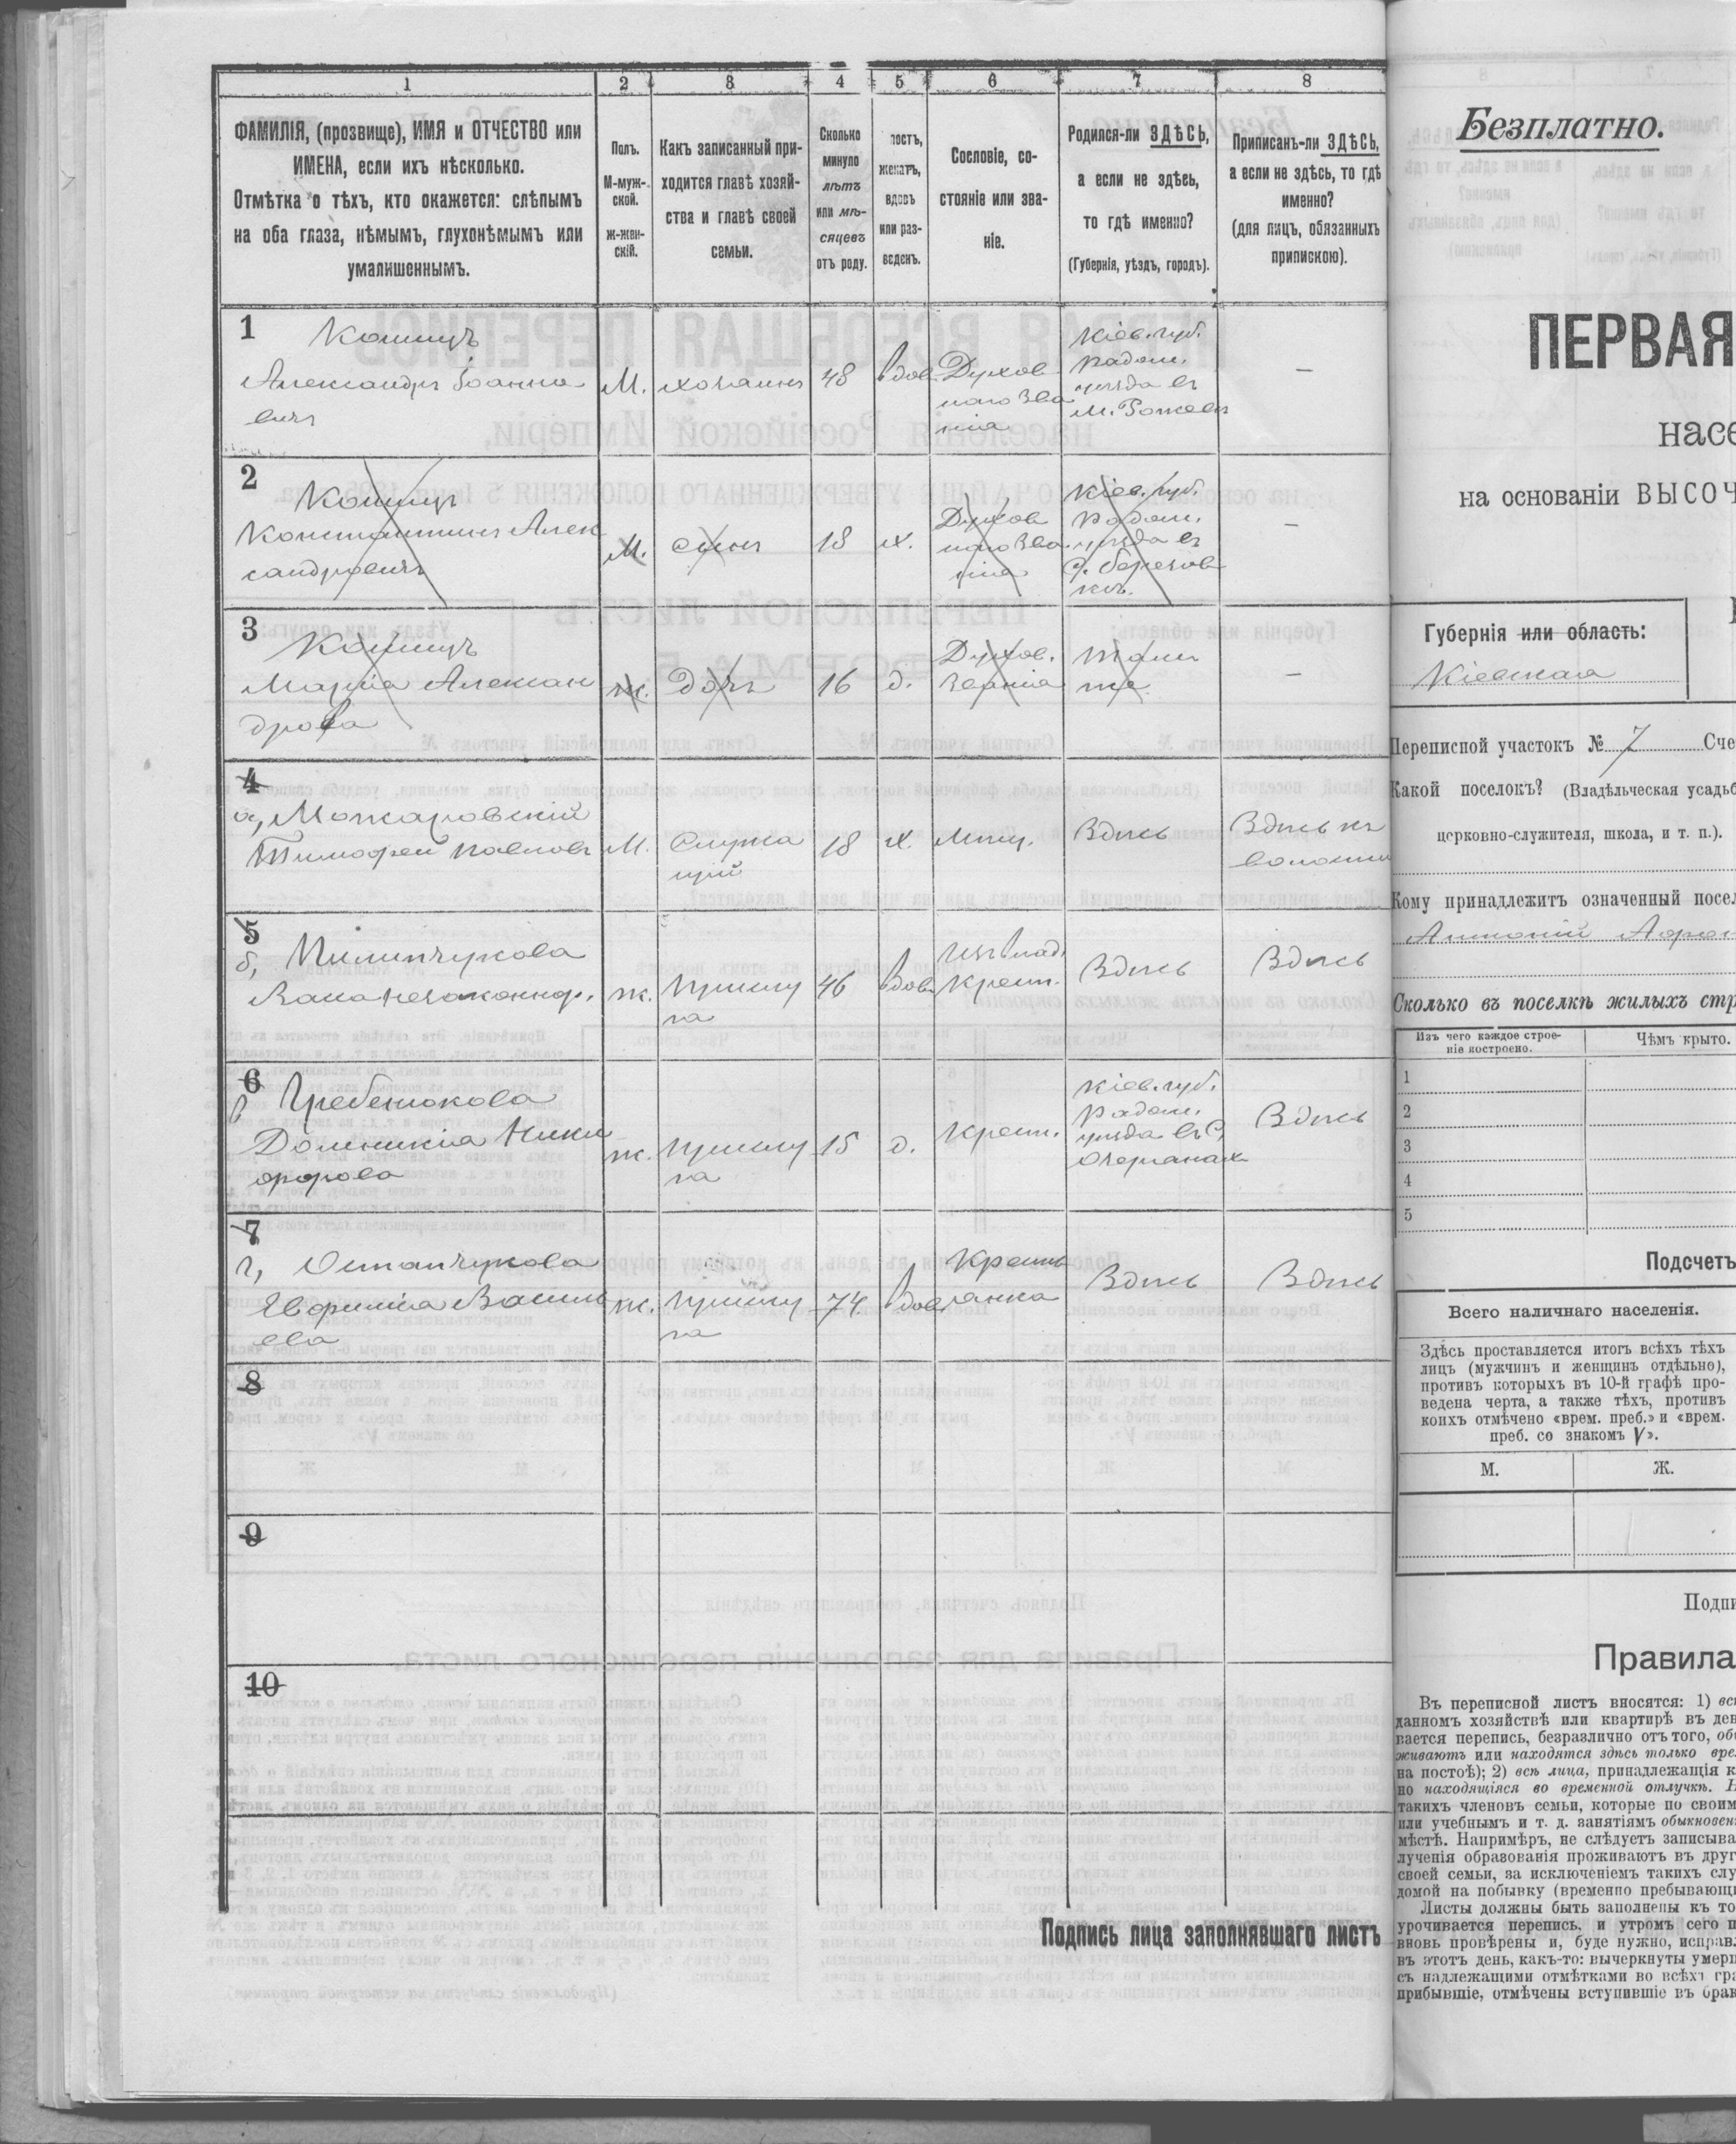 1
2
3
4
5
6
7
8
ФАМИЛІЯ, (прозвище), ИМЯ и ОТЧЕСТВО или
ИМЕНА, если ихъ нѣсколько.
Отмѣтка о тѣхъ, кто окажется: слѣпымъ
на оба глаза, нѣмымъ, глухонѣмымъ или
умалишеннымъ.
Полъ.
М-муж-
ской.
ж-жен-
скій.
Какъ записанный при-
ходится главѣ хозяй-
ства и главѣ своей
семьи.
Сколько
минуло
лѣтъ
или мѣ-
сяцевъ
отъ роду.
лостъ,
женатъ,
вдовъ
или раз-
веденъ.
Сословіе, со-
стояніе или зва-
ніе.
Родился-ли ЗДѢСЬ,
а если не здѣсь,
то гдѣ именно?
(Губернія, уѣздъ, городъ).
Приписанъ-ли ЗДѢСЬ,
а если не здѣсь, то гдѣ
именно?
(для лицъ, обязанныхъ
припискою).
1
Кошицъ
Александръ Іоанно
вичъ
М.
хозяинъ
48
вдов.
Духов
наго зва
нія
Кіев. губ.
Радом.
уѣзда въ
м.
—
2
Кошицъ
Константинъ Алек
сандровичъ
М.
сынъ
18
х.
Духов
наго зва
нія
Кіев. губ.
Радом.
уѣзда въ
с. Березов
кѣ.
—
3
Кошицъ
Марія Алексан
дрова
ж.
дочь
16
д.
Духов.
званія
тамъ
же
—
4
а, Можаровскій
Тимофей Павловъ
М.
Служа
щій
18
х.
Мѣщ.
Здѣсь
Здѣсь къ
волости
5
б, Пилипчукова
незаконнор.
ж.
Прислу
га
46
вдова
Изъ влад.
крест.
Здѣсь
Здѣсь
6
в Гребенюкова
Домникія Ники
форова
ж.
Прислу
га
15
д.
Крест.
Кіев. губ.
Радом.
уѣзда въ с.
Здѣсь
7
г, Остапчукова
Евфимія Василь
ева
ж.
Прислу
га
74
вдова
Кресть
янка
Здѣсь
Здѣсь
8
9
10
Подпись лица заполнявшаго листъ
Безплатно.
ПЕРВАЯ
насе
на основаніи ВЫСОЧ
Губернія или область:
Кіевская
Переписной участокъ № 7 Сче
Какой поселокъ? (Владѣльческая усадьб
церковно-служителя, школа, и т. п.).
Кому принадлежитъ означенный посел
Антоній
Сколько въ поселкѣ жилыхъ стр
Изъ чего каждое строе-
ніе построено.
Чѣмъ крыто.
1
2
3
4
5
Подсчетъ
Всего наличнаго населенія.
Здѣсь проставляется итогъ всѣхъ тѣхъ
лицъ (мужчинъ и женщинъ отдѣльно),
противъ которыхъ въ 10-й графѣ про-
ведена черта, а также тѣхъ, противъ
коихъ отмѣчено «врем. преб.» и «врем.
преб. со знакомъ V».
М.
Ж.
Подпи
Правила
Въ переписной листъ вносятся: 1) всѣ
данномъ хозяйствѣ или квартирѣ въ ден
вается перепись, безразлично отъ того, обы
живаютъ или находятся здѣсь только вре
на постоѣ); 2) всѣ лица, принадлежащія к
но находящіяся во временной отлучкѣ. Н
такихъ членовъ семьи, которые по своим
или учебнымъ и т. д. занятіямъ обыкновен
мѣстѣ. Напримѣръ, не слѣдуетъ записыва
лученія образованія проживаютъ въ друг
своей семьи, за исключеніемъ такихъ слу
домой на побывку (временно пребывающі
Листы должны быть заполнены къ то
урочивается перепись, и утромъ сего п
вновь провѣрены и, буде нужно, исправл
въ этотъ день, какъ-то: вычеркнуты умерш
съ надлежащими отмѣтками во всѣхъ гра
прибывшіе, отмѣчены вступившіе въ брак